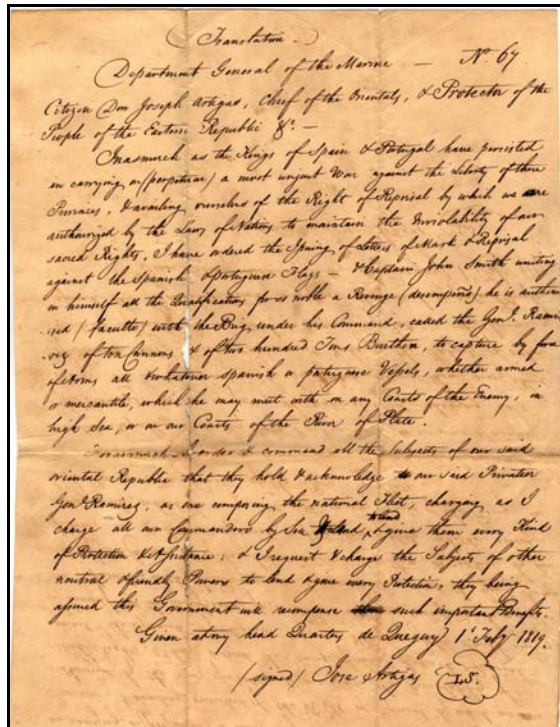 (Translation -)
Department General of the Marine — No. 67
Citizen Don Joseph Artigas, Chief of the Orientals, & Protector of the
People of the Eastern Republic &c. —
Inasmuch as the Kings of Spain & Portugal have persisted
in carrying on (perpetuar) a most urgent War against the Liberty of these
Provinces, & availing ourselves of the Right of Reprisal by which we are
authorized by the Laws of Nations to maintain the Inviolability of our
sacred Rights, I have ordered the Issuing of Letters of Mark & Reprisal
against the Spanish & portuguese Flags — & Captain John Smith uniting
in himself all the Qualifications for so noble a Revenge (desempeño) he is autho
-sed (faculto) with the Brig under his Command, called the Genl. Rami
-rez of ten Cannons & of two hundred Tons Burthen, to capture by force
of Arms all whatsoever spanish or portuguese Vessels, whether armed
or mercantile, which he may meet with on any Coasts of the Enemy, in
high Sea, or on our Coasts of the River of Plate.
I order & command all the Subjects of our said
oriental Republic that they hold & acknowledge our said Privateer
Genl. Ramirez, as one composing the national Fleet, charging, as I
charge all our Commanders by Sea & Land, to give them every Kind
of Protection & Assistance; & I request & charge the Subjects of other
neutral & friendly Powers to lend & give every Protection, they being
assured this Government will recompense such important Benefits.
Given at my head Quarters de 1st Feby 1819.
(signed) Jose Artigas L.S.